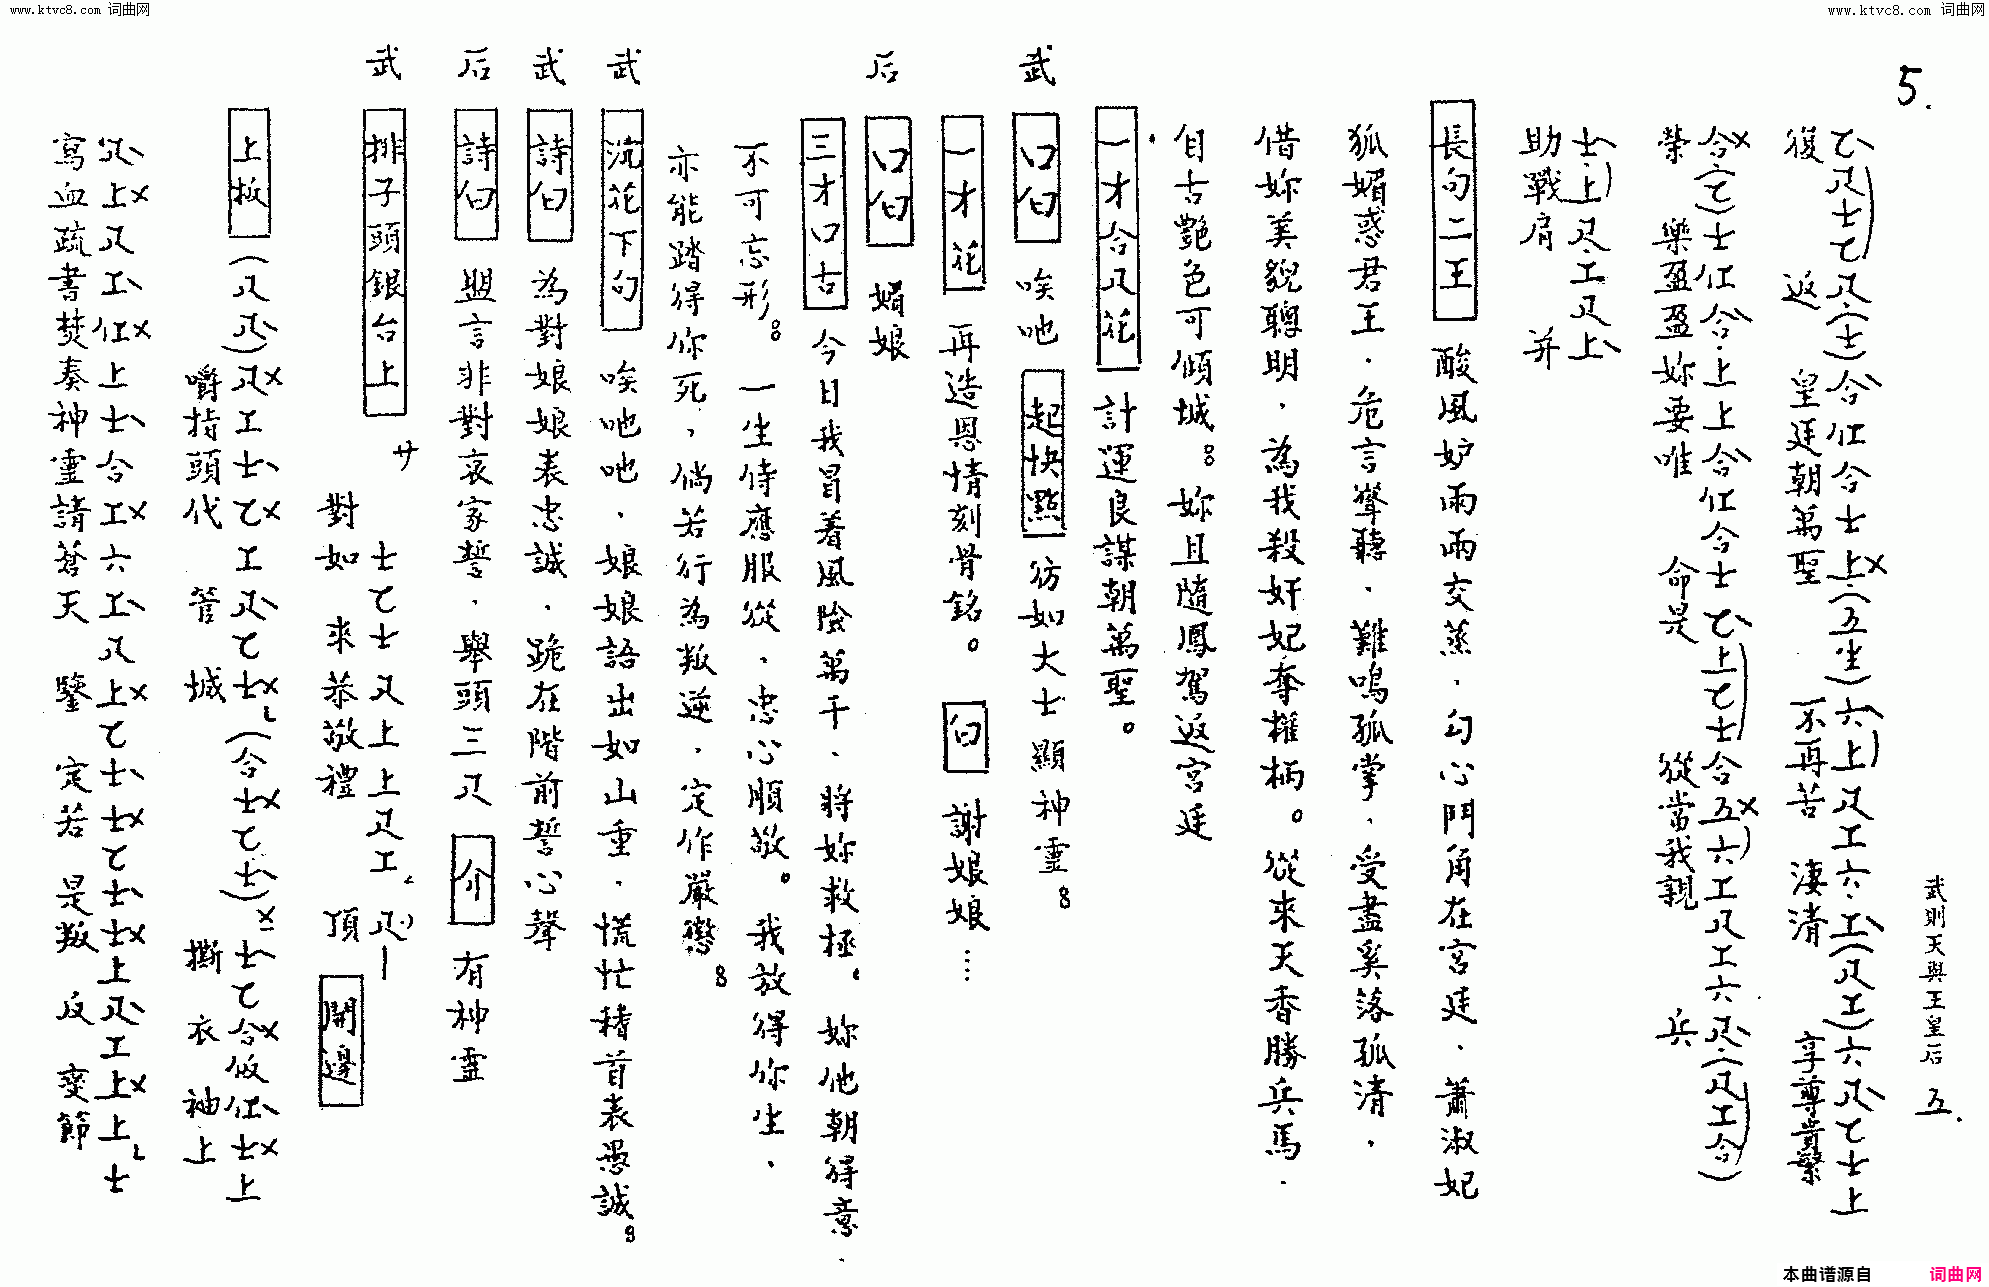 www.ktvc8.com 词曲网
www.ktvc8.com 词曲网
5.
武則天與王皇后 五.
復 返 皇廷朝萬聖 不再苦 淒清 享尊貴繁
榮 樂盈盈妳要唯 命是 從當我親 兵
士上尺工尺上
助戰肩 并
長句二王 酸風妒雨兩交蒸．勾心鬥角在宮廷．蕭淑妃
狐媚惑君王．危言聳聽．難鳴孤掌．受盡奚落孤清．
借妳美貌聰明．為我殺奸妃奪權柄。從來天香勝兵馬．
自古艷色可傾城。妳且隨鳳駕返宮廷
一才合尺花 計運良謀朝萬聖。
武 口白 唉吔 起快點 彷如大士顯神靈。
一才花 再造恩情刻骨銘。 白 謝娘娘…
后 口白 媚娘
三才口古 今日我冒着風險萬千、將妳救極。妳他朝得意．
不可忘形。一生侍應服從．忠心順敬。我放得你生、
亦能踏得你死．倘若行為叛逆．定作嚴懲。
武 沈花下句 唉吔吔．娘娘語出如山重．慌忙稽首表愚誠。
武 詩白 為對娘娘表忠誠．跪在階前誓心聲
后 詩白 盟言非對哀家誓．舉頭三尺 介 有神靈
武 排子頭銀台上 サ
士乙士尺上上尺工 尺
對如 來恭敬禮 頂 開邊
上板 (尺尺)尺工士乙工尺乙士(合士乙士)士乙合仮仜士上
嚼持頭代 管 城 撕 衣 袖上
尺上尺工仜上士合工六工尺上乙士士乙士士上尺工上上士
寫血疏書焚奏神靈請蒼天 鑒 定若 是叛 反 變節
本曲谱源自 词曲网